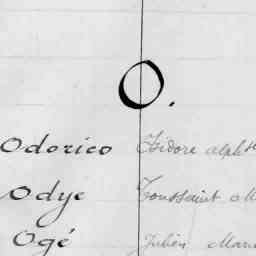 O.
Odorico Isidore alph
Odye Toussaint M
Ogé Julien Mari